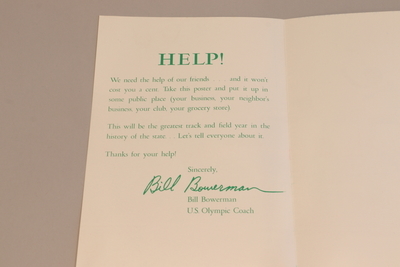 HELP!
We need the help of our friends . . . and it won't
cost you a cent. Take this poster and put it up in
some public place (your business, your neighbor's
business, your club, your grocery store).
This will be the greatest track and field year in the
history of the state . . . Let's tell everyone about it.
Thanks for your help!
Sincerely,
Bill Bowerman
Bill Bowerman
U.S. Olympic Coach